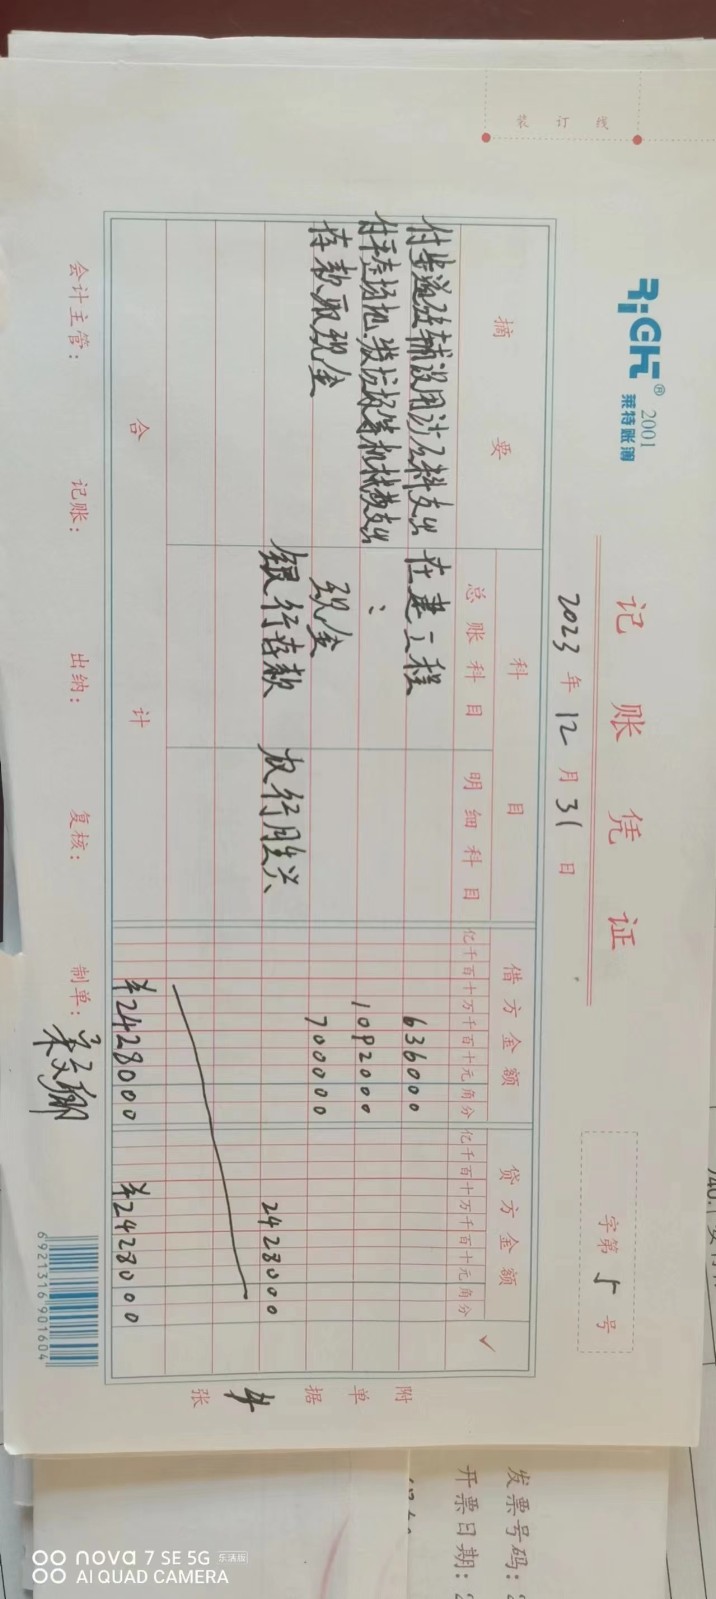 装 订 线
RiGHT® 2001
莱特账簿
记 账 凭 证
2023 年 12 月 31 日
字第 5 号
摘 要 科 目 借方金额 贷方金额 ✓
总账科目 明细科目 亿千百十万千百十元角分 亿千百十万千百十元角分
付步道 铺设用沙石料支出 在建工程 636000
付平整场地 垃圾等机械费支出 : 1092000
存款取现金 现金 700000
银行存款 农行 2428000
合 计 ¥2428000 ¥2428000
附 单 据 4 张
会计主管: 记账: 出纳: 复核: 制单:
6 921316 901604
发票号码:
开票日期: 2
nova 7 SE 5G 乐活版
AI QUAD CAMERA